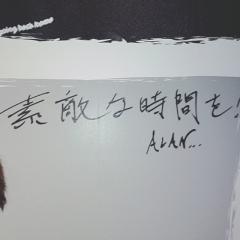 素敵な時間を!
ALAN...